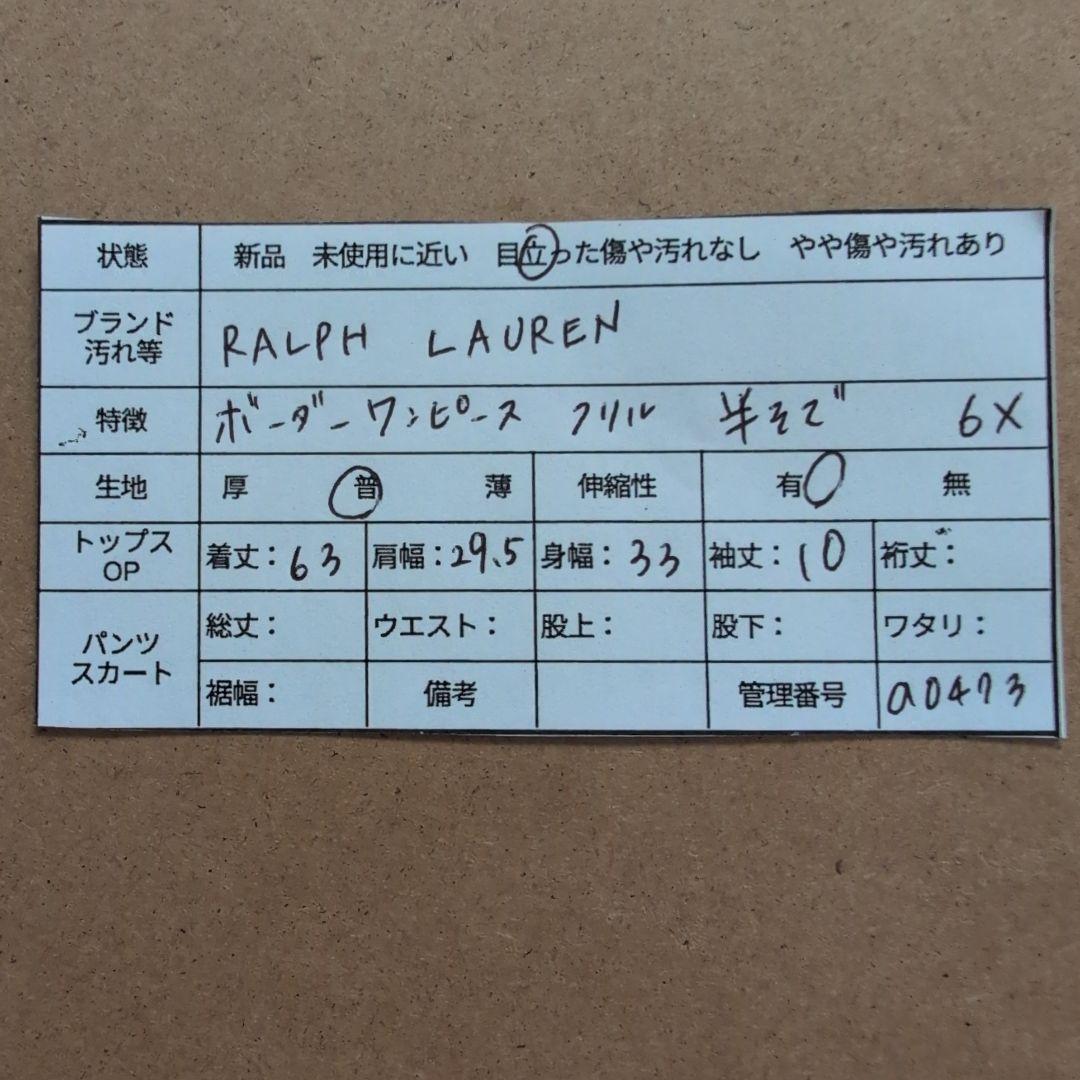 状態 新品 未使用に近い 目立った傷や汚れなし やや傷や汚れあり
ブランド
汚れ等 RALPH LAUREN
特徴 ボーダーワンピース フリル 半そで 6X
生地 厚 普 薄 伸縮性 有 無
トップス
OP 着丈:63 肩幅:29.5 身幅:33 袖丈:10 裄丈:
パンツ
スカート 総丈: ウエスト: 股上: 股下: ワタリ:
裾幅: 備考 管理番号 a0473